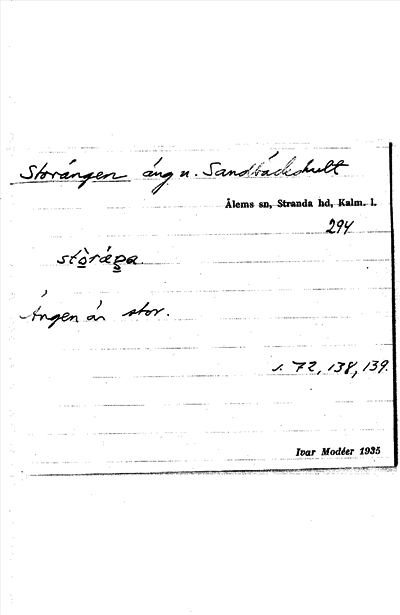 Storängen äng u. Sandbäckshult
Ålems sn, Stranda hd, Kalm. l.
294
Ängen är stor.
s. 72, 138, 139.
Ivar Modéer 1935